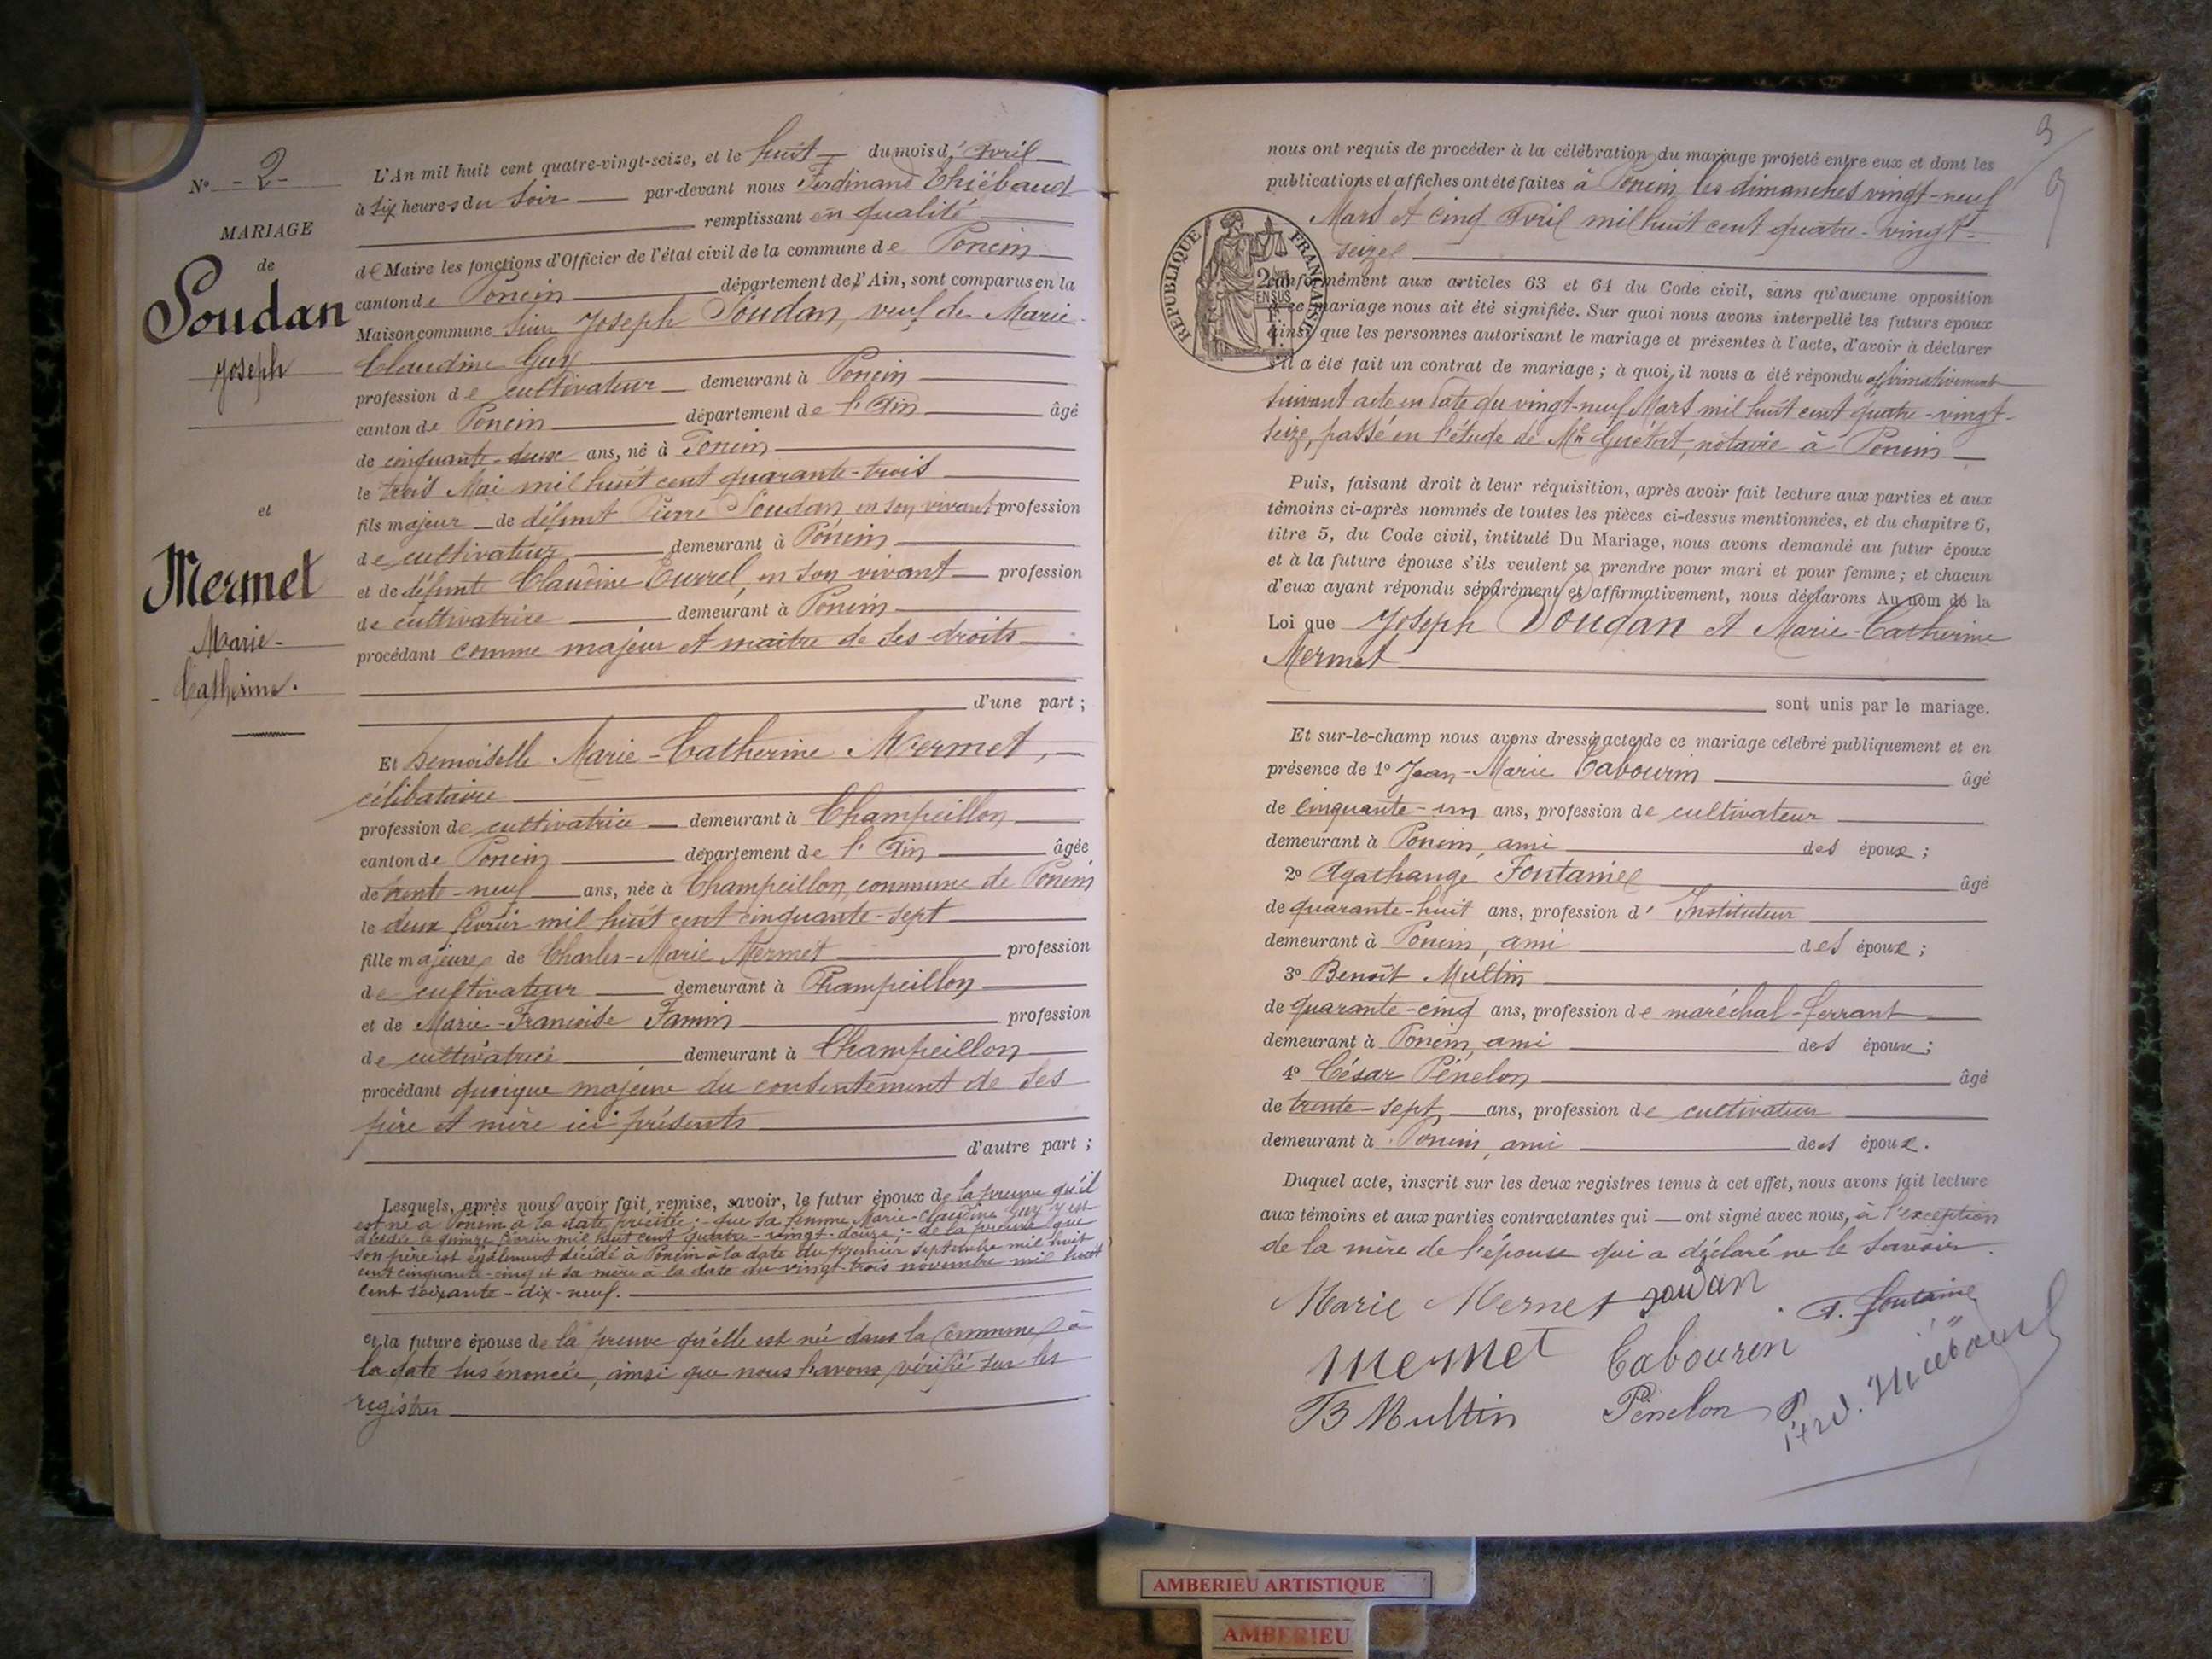 N° - 2 -
MARIAGE
de
Soudan
Joseph
et
Mermet
Marie-
- Catherine.
L'An mil huit cent quatre-vingt-seize, et le huit du mois d'Avril
à six heures du soir par-devant nous Ferdinand Thiébaud
remplissant en qualité
de Maire les fonctions d'Officier de l'état civil de la commune de Poncin
canton de Poncin département de l'Ain, sont comparus en la
Maison commune Sieur Joseph Soudan, veuf de Marie-
Claudine Guy
profession de cultivateur demeurant à Poncin
canton de Poncin département de l'Ain âgé
de cinquante-deux ans, né à Poncin
le trois Mai mil huit cent quarante-trois
fils majeur de défunt Pierre Soudan, en son vivant profession
de cultivateur demeurant à Poncin
et de défunte Claudine Currel, en son vivant profession
de cultivatrice demeurant à Poncin
procédant comme majeur et maître de ses droits
d'une part ;
Et Demoiselle Marie-Catherine Mermet,
célibataire
profession de cultivatrice demeurant à Champeillon
canton de Poncin département de l'Ain âgée
de trente-neuf ans, née à Champeillon, commune de Poncin
le deux février mil huit cent cinquante-sept
fille majeure de Charles-Marie Mermet profession
de cultivateur demeurant à Champeillon
et de Marie-Françoise Famin profession
de cultivatrice demeurant à Champeillon
procédant quoique majeure du consentement de ses
père et mère ici présents
d'autre part ;
Lesquels, après nous avoir fait remise, savoir, le futur époux de la preuve qu'il
est né à Poncin à la date précitée ; - que sa femme Marie-Claudine Guy y est
décédée le quinze février mil huit cent quatre-vingt-douze ; - de la preuve que
son père est également décédé à Poncin à la date du premier septembre mil huit
cent cinquante-cinq et sa mère à la date du vingt-trois novembre mil huit
cent soixante-dix-neuf.
et la future épouse de la preuve qu'elle est née dans la commune à
la date sus énoncée, ainsi que nous l'avons vérifié sur les
registres
3
nous ont requis de procéder à la célébration du mariage projeté entre eux et dont les
publications et affiches ont été faites à Poncin les dimanches vingt-neuf
Mars et cinq Avril mil huit cent quatre-vingt-
seize
REPUBLIQUE FRANÇAISE
conformément aux articles 63 et 64 du Code civil, sans qu'aucune opposition
à ce mariage nous ait été signifiée. Sur quoi nous avons interpellé les futurs époux
ainsi que les personnes autorisant le mariage et présentes à l'acte, d'avoir à déclarer
s'il a été fait un contrat de mariage ; à quoi il nous a été répondu affirmativement
suivant acte en date du vingt-neuf Mars mil huit cent quatre-vingt-
seize, passé en l'étude de Me Guétat, notaire à Poncin
Puis, faisant droit à leur réquisition, après avoir fait lecture aux parties et aux
témoins ci-après nommés de toutes les pièces ci-dessus mentionnées, et du chapitre 6,
titre 5, du Code civil, intitulé Du Mariage, nous avons demandé au futur époux
et à la future épouse s'ils veulent se prendre pour mari et pour femme ; et chacun
d'eux ayant répondu séparément et affirmativement, nous déclarons Au nom de la
Loi que Joseph Soudan et Marie-Catherine
Mermet
sont unis par le mariage.
Et sur-le-champ nous avons dressé acte de ce mariage célébré publiquement et en
présence de 1° Jean-Marie Cabourin âgé
de cinquante-un ans, profession de cultivateur
demeurant à Poncin, ami des époux ;
2° Agathange Fontaine âgé
de quarante-huit ans, profession d'Instituteur
demeurant à Poncin, ami des époux ;
3° Benoît Multin
de quarante-cinq ans, profession de maréchal-ferrant
demeurant à Poncin, ami des époux ;
4° César Pénelon âgé
de trente-sept ans, profession de cultivateur
demeurant à Poncin, ami des époux.
Duquel acte, inscrit sur les deux registres tenus à cet effet, nous avons fait lecture
aux témoins et aux parties contractantes qui ont signé avec nous, à l'exception
de la mère de l'épouse qui a déclaré ne le savoir.
Marie Mermet Soudan A. Fontaine
Mermet Cabouren
B Multin Pénelon Ferd. Thiébaud
AMBERIEU ARTISTIQUE
AMBERIEU